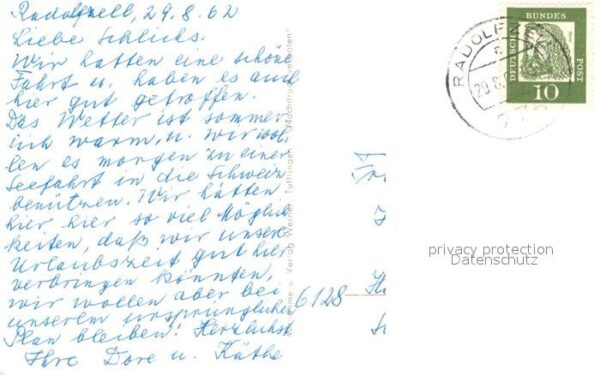 Radolfzell, 29.8.62
Liebe Schlicks.
Wir hatten eine schöne
Fahrt u. haben es auch
hier gut getroffen.
Das Wetter ist sommer-
lich warm, u. wir wol-
len es morgen zu einer
Seefahrt in die Schweiz
benützen. Wir hätten
hier hier so viel Möglich
keiten, daß wir unsere
Urlaubszeit gut hier
verbringen könnten,
wir wollen aber bei
unserem ursprünglichen
Plan bleiben! Herzlichst
Ihre Dore u. Käthe
u. Verlag Werner Tuttlingen
6128
RADOLF
29.8.
DEUTSCHE BUNDES POST
10
privacy protection
Datenschutz